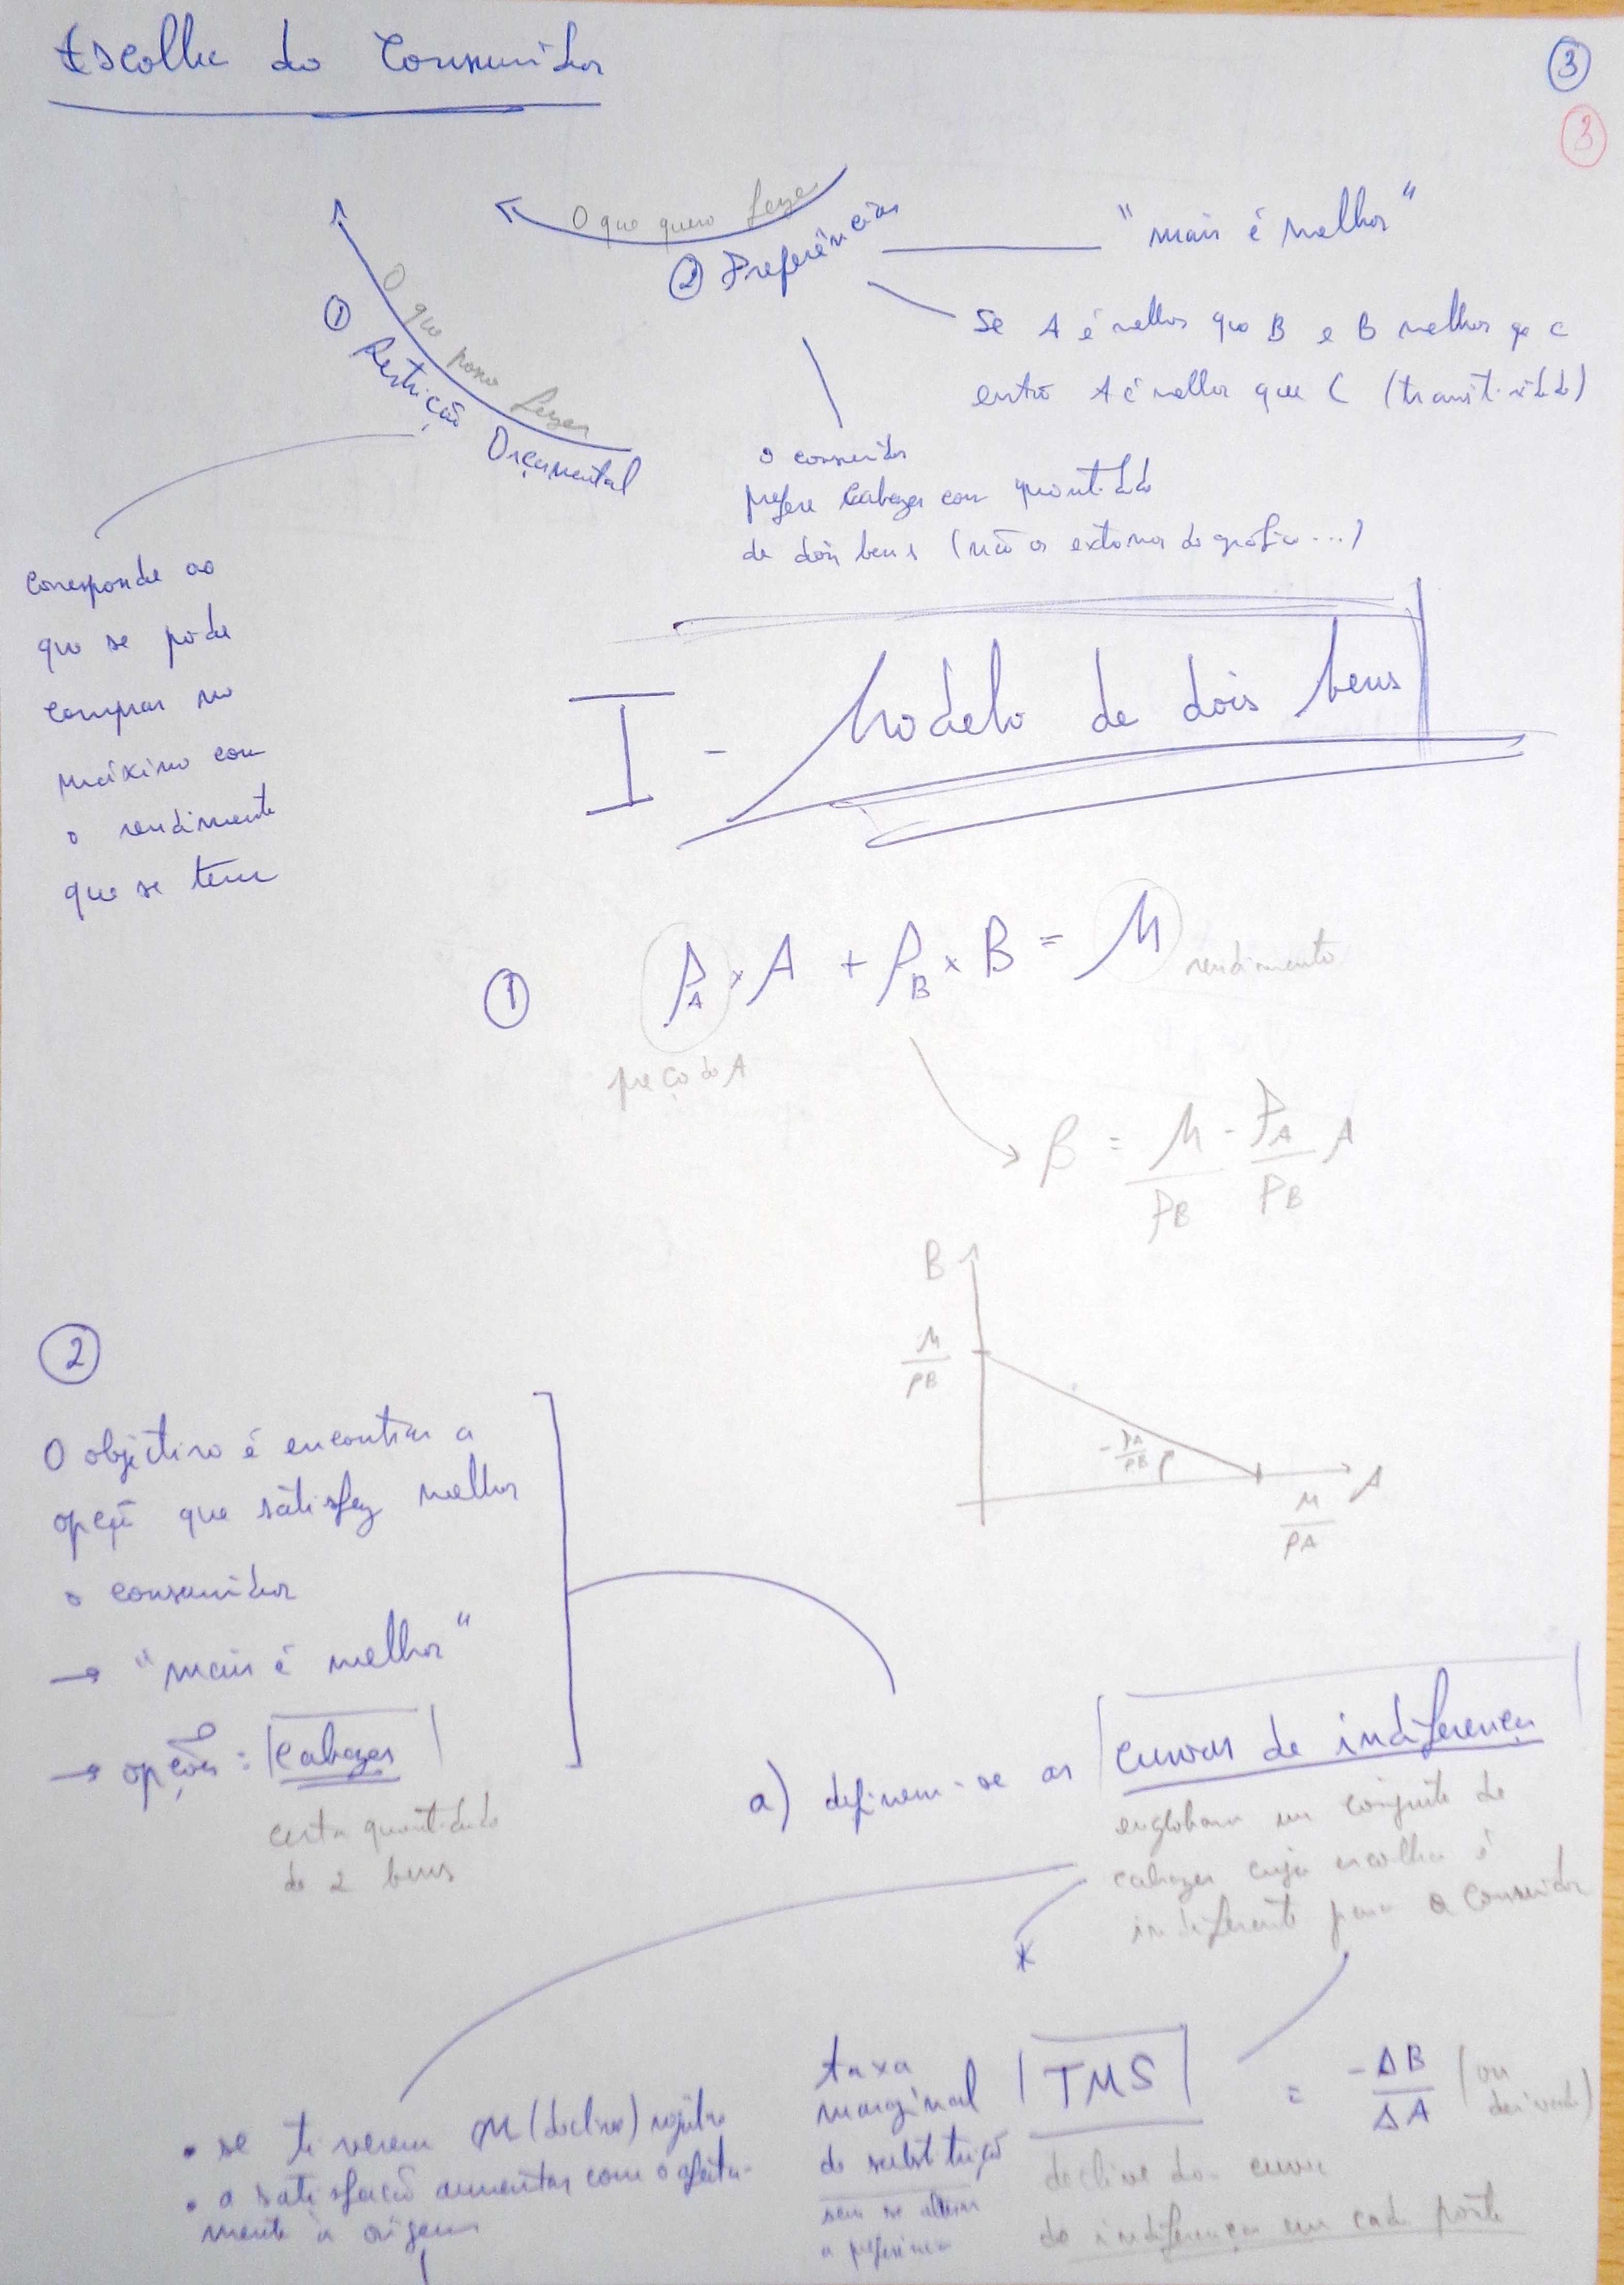 Escolha do Consumidor
3
3
O que quero fazer
② Preferências
"mais é melhor"
O que posso fazer
① Restrição Orçamental
Se A é melhor que B e B melhor que C
então A é melhor que C (transitividade)
o consumidor
prefere cabazes com quantidade
de dois bens (não os extremos do gráfico...)
corresponde ao
que se pode
comprar no
máximo com
o rendimento
que se tem
I - Modelo de dois bens
① PA × A + PB × B = M rendimento
preço do A
B = M/PB - PA/PB A
B
M/PB
-PA/PB
A
M/PA
②
O objectivo é encontrar a
opção que satisfaz melhor
o consumidor
→ "mais é melhor"
→ opções: cabazes
certa quantidade
de 2 bens
a) definem-se as curvas de indiferença
englobam um conjunto de
cabazes cuja escolha é
indiferente para o consumidor
*
taxa
marginal
de substituição
sem se alterar
a preferência
TMS = -ΔB/ΔA (ou derivada)
declive da curva
de indiferença em cada ponto
• se tiverem m (declive) negativo
• a satisfação aumentar com o afasta-
mento à origem